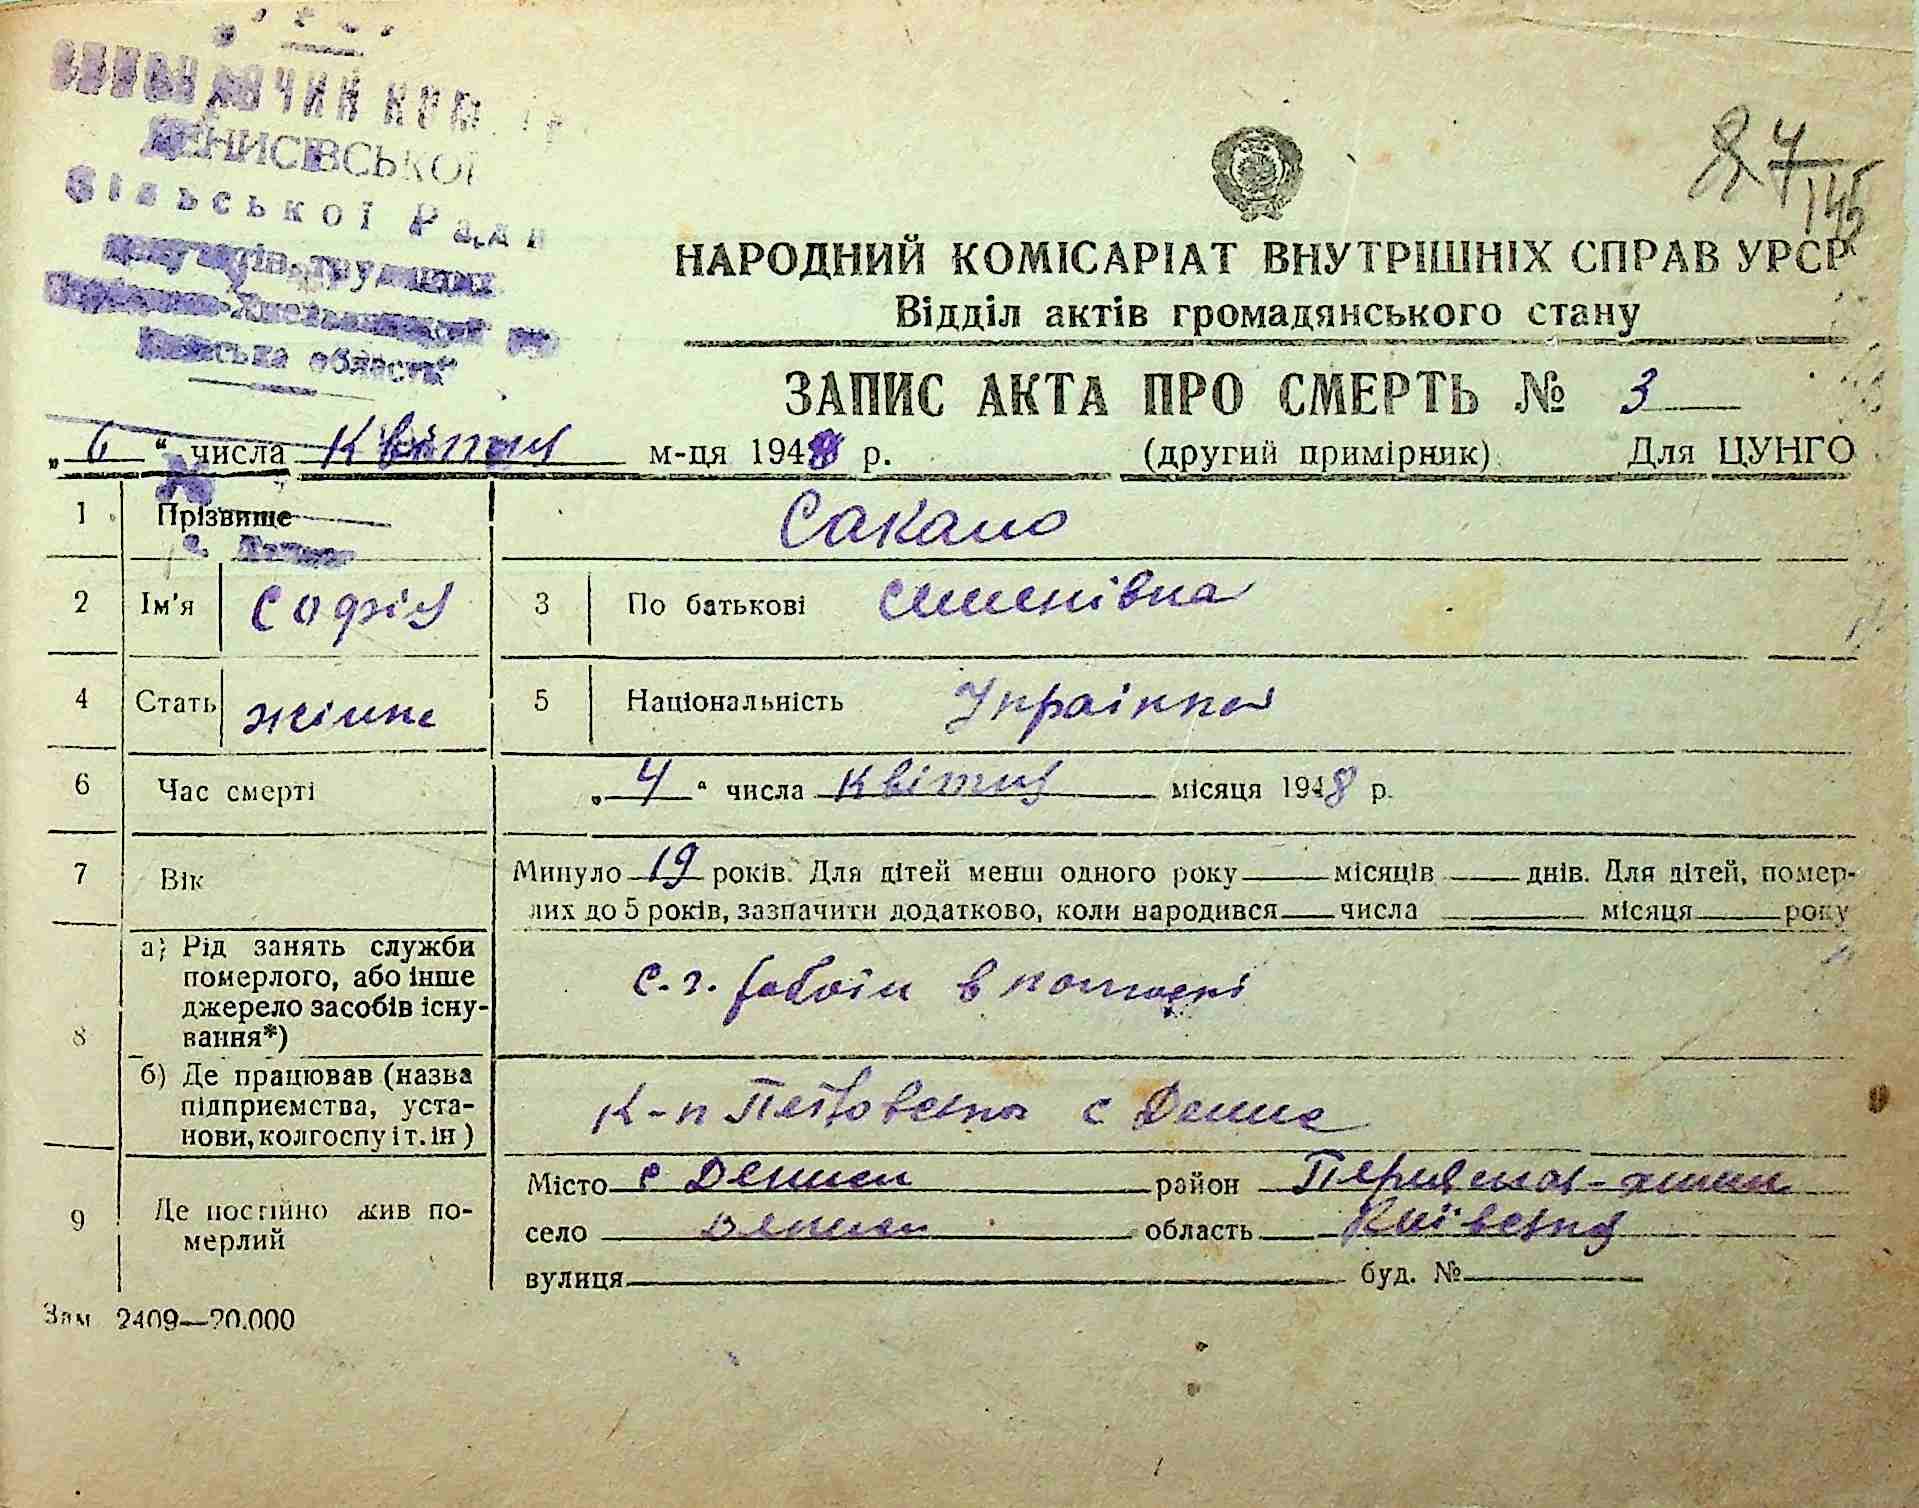 ДЕНИСІВСЬКОЇ
Сільської Ради
область
87/145
НАРОДНИЙ КОМІСАРІАТ ВНУТРІШНІХ СПРАВ УРСР
Відділ актів громадянського стану
ЗАПИС АКТА ПРО СМЕРТЬ № 3
„ 6 “ числа Квітня м-ця 1948 р. (другий примірник) Для ЦУНГО
1 Прізвище Сакало
2 Ім'я Софія 3 По батькові Семенівна
4 Стать жіноче 5 Національність Українка
6 Час смерті „ 4 “ числа Квітня місяця 1948 р.
7 Вік Минуло 19 років. Для дітей менш одного року місяців днів. Для дітей, помер-
лих до 5 років, зазначити додатково, коли народився числа місяця року
8 а) Рід занять служби
померлого, або інше
джерело засобів існу-
вання*)
с. г. роботи в колгоспі
б) Де працював (назва
підприємства, уста-
нови, колгоспу і т. ін)
К-п Петровського с Дениси
9 Де постійно жив по-
мерлий
Місто с Дениси район Переяслав-
село Дениси область Київська
вулиця буд. №
Зам 2409—20.000